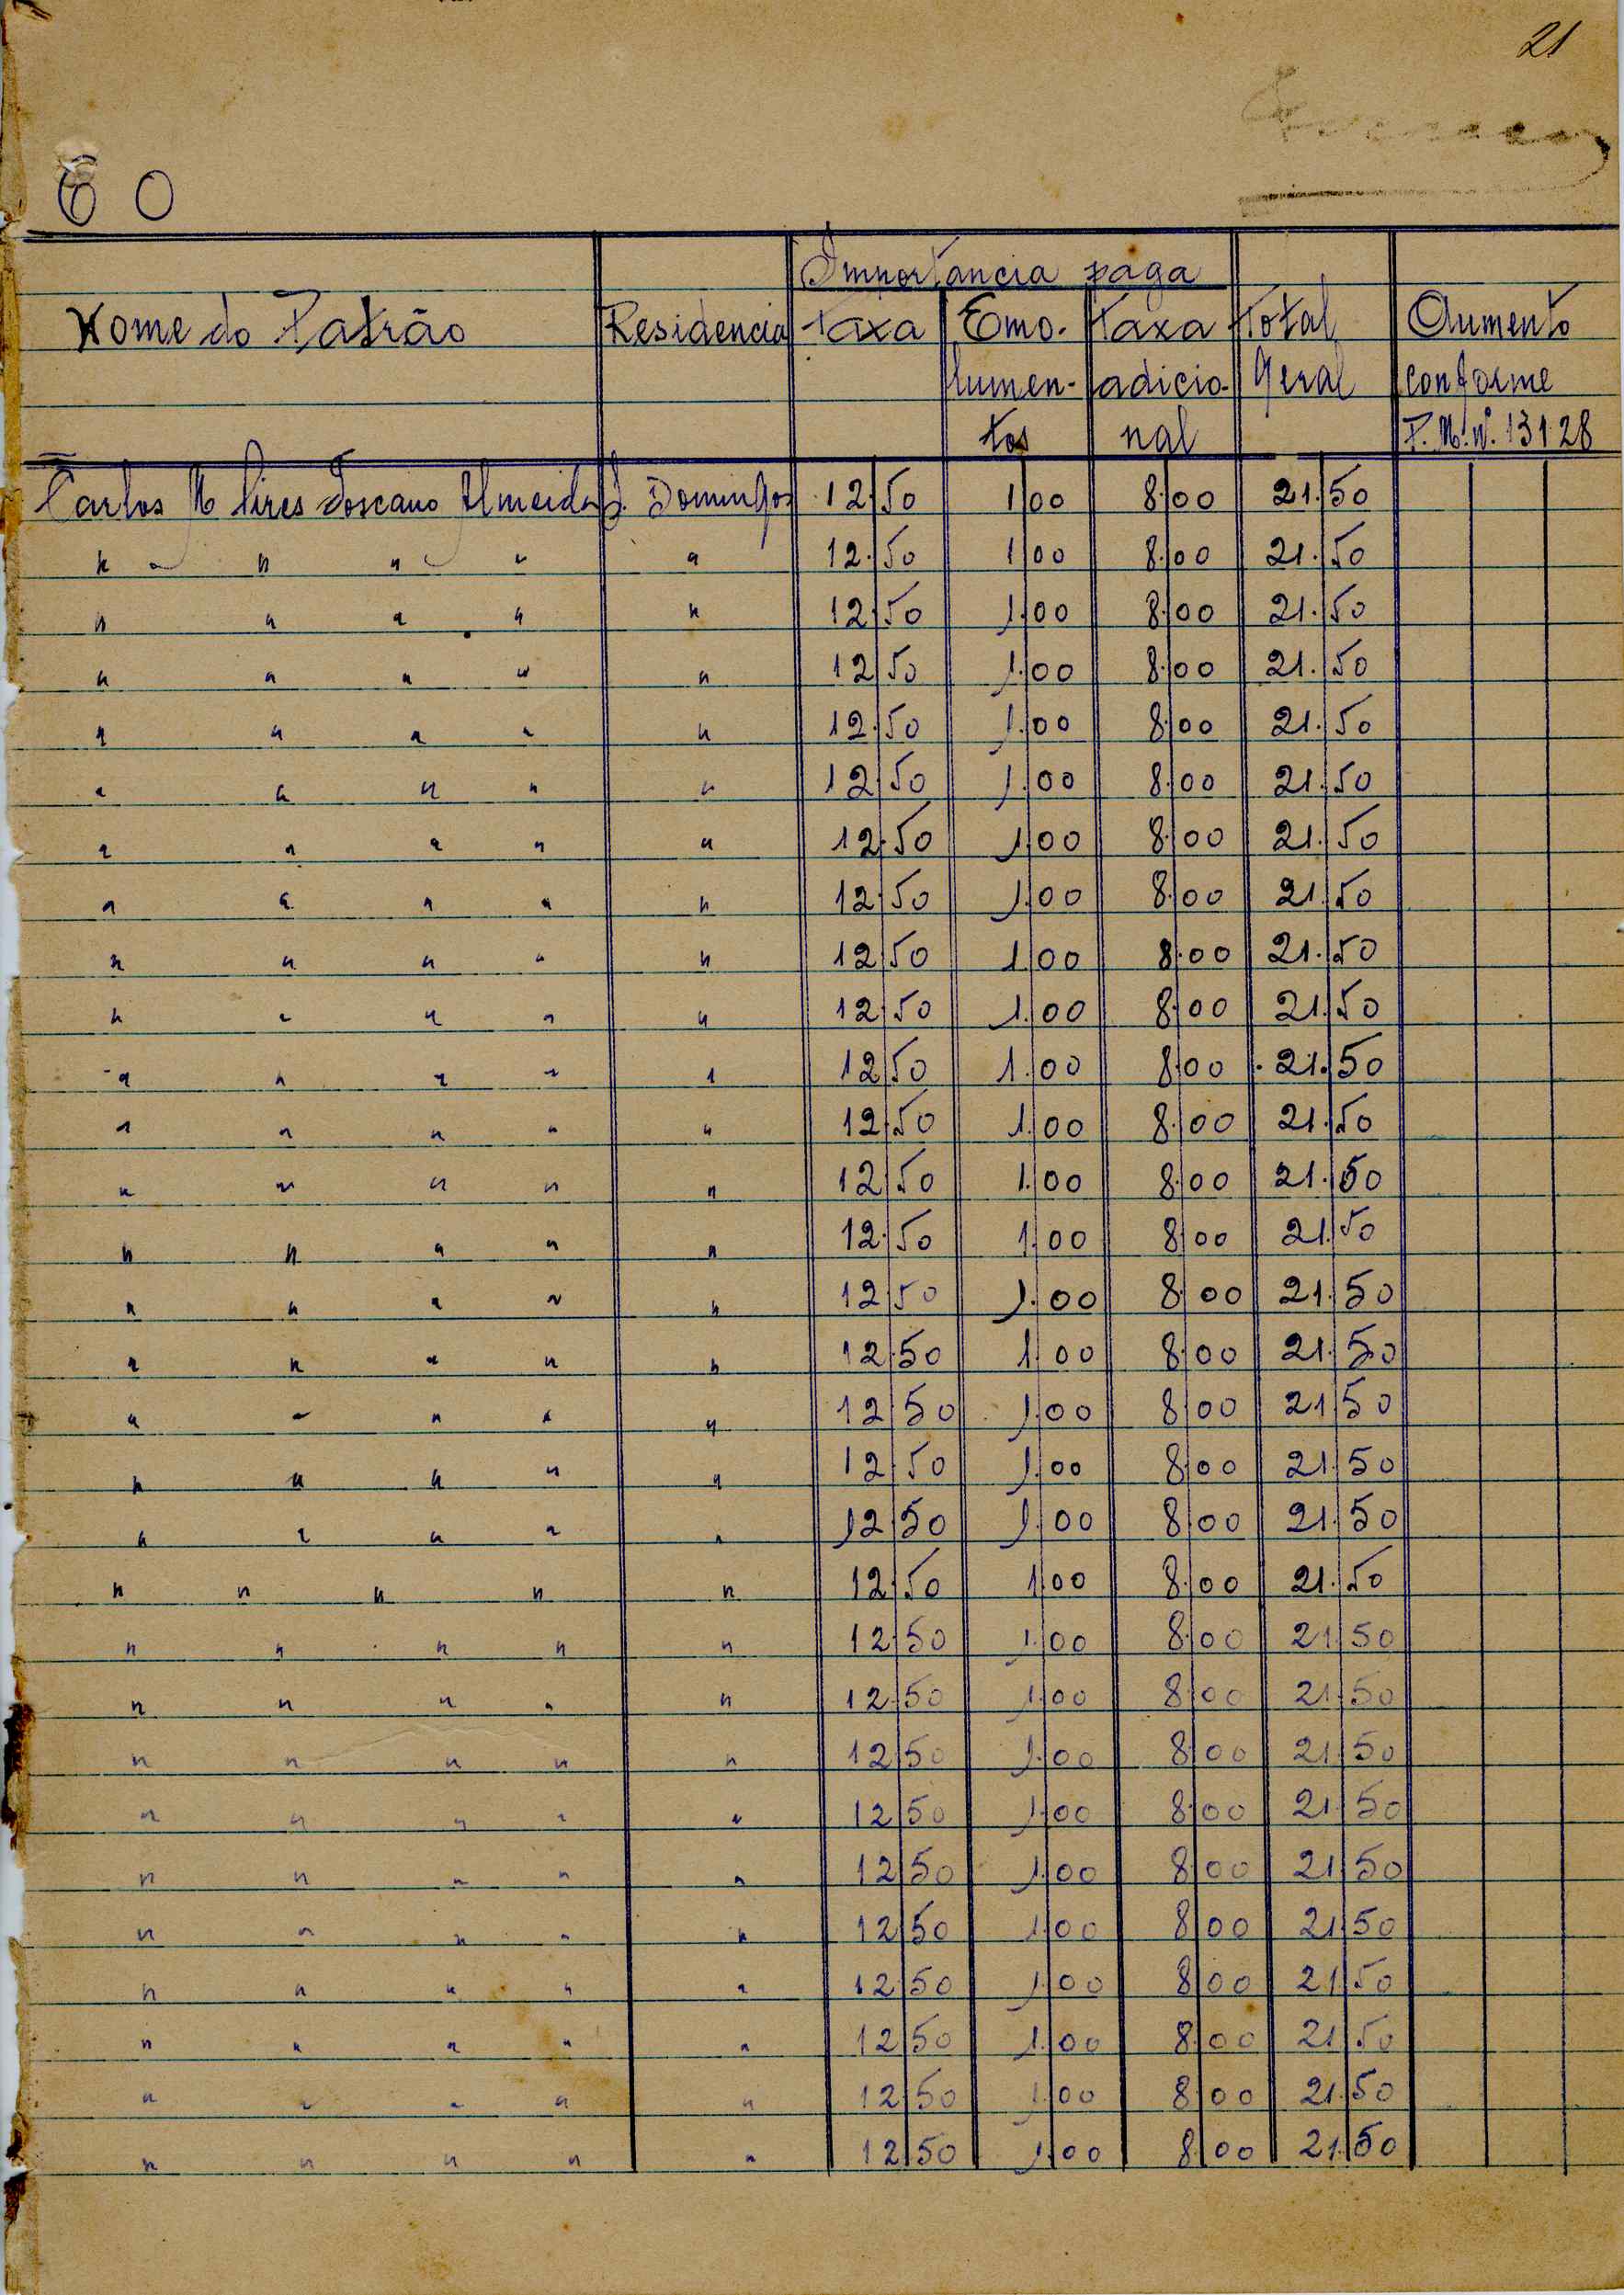 21
60
Importancia paga
Nome do Patrão Residencia Taxa Emo- Taxa Total Aumento
lumen- adicio- Geral conforme
tos nal P. M. N.º 13128
Carlos M Pires Toscano Almeida S. Domingos 12.50 1.00 8.00 21.50
" " " " " 12.50 1.00 8.00 21.50
" " " " " 12.50 1.00 8.00 21.50
" " " " " 12.50 1.00 8.00 21.50
" " " " " 12.50 1.00 8.00 21.50
" " " " " 12.50 1.00 8.00 21.50
" " " " " 12.50 1.00 8.00 21.50
" " " " " 12.50 1.00 8.00 21.50
" " " " " 12.50 1.00 8.00 21.50
" " " " " 12.50 1.00 8.00 21.50
" " " " " 12.50 1.00 8.00 21.50
" " " " " 12.50 1.00 8.00 21.50
" " " " " 12.50 1.00 8.00 21.50
" " " " " 12.50 1.00 8.00 21.50
" " " " " 12.50 1.00 8.00 21.50
" " " " " 12.50 1.00 8.00 21.50
" " " " " 12.50 1.00 8.00 21.50
" " " " " 12.50 1.00 8.00 21.50
" " " " " 12.50 1.00 8.00 21.50
" " " " " 12.50 1.00 8.00 21.50
" " " " " 12.50 1.00 8.00 21.50
" " " " " 12.50 1.00 8.00 21.50
" " " " " 12.50 1.00 8.00 21.50
" " " " " 12.50 1.00 8.00 21.50
" " " " " 12.50 1.00 8.00 21.50
" " " " " 12.50 1.00 8.00 21.50
" " " " " 12.50 1.00 8.00 21.50
" " " " " 12.50 1.00 8.00 21.50
" " " " " 12.50 1.00 8.00 21.50
" " " " " 12.50 1.00 8.00 21.50